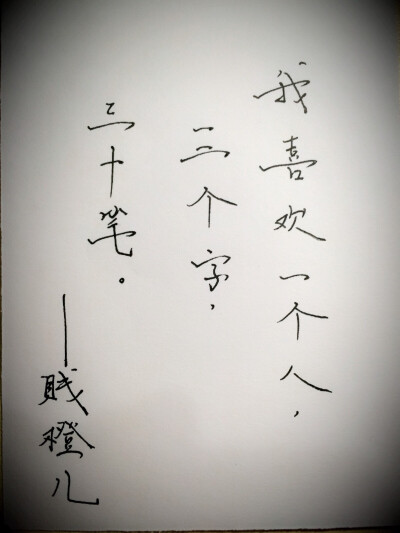 我喜欢一个人，
三个字，
三十笔。
——贱橙儿